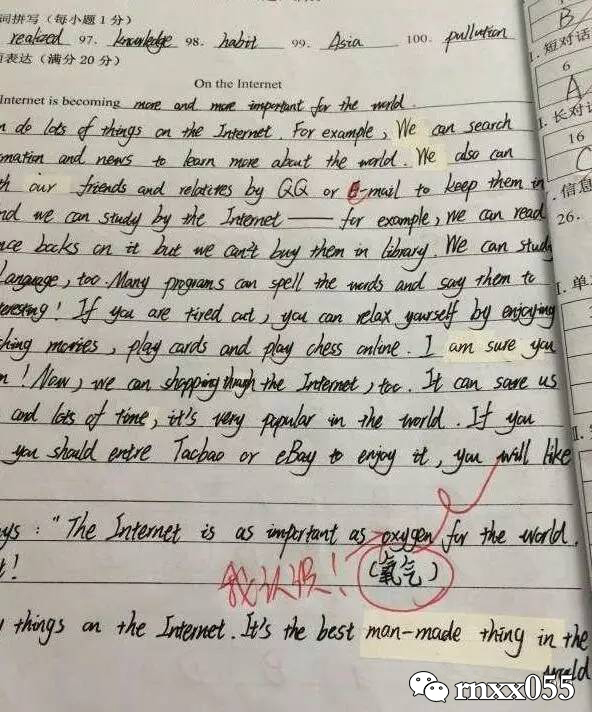 词拼写（每小题 1 分）
realized 97. knowledge 98. habit 99. Asia 100. pullution
表达（满分 20 分）
On the Internet
Internet is becoming more and more important for the world.
n do lots of things on the Internet. For example, We can search
mation and news to learn more about the world. We also can
h our friends and relatires by QQ or E-mail to keep them in
nd we can study by the Internet — for example, we can read
nce books on it but we can't buy them in library. We can study
language, too. Many programs can spell the words and say them to
teresting! If you are tired out, you can relax yourself by enjoying
ching movies, play cards and play chess online. I am sure you
n! Now, we can shopping though the Internet, too. It can save us
and lots of time, it's very popular in the world. If you
you should entre Taobao or eBay to enjoy it, you will like
ys: "The Internet is as important as oxygen for the world.
t!
(氧气)
我认识!
things on the Internet. It's the best man-made thing in the
world
B
1. 短对话
6
A
16
C
信息
26.
单
II.
rnxx055